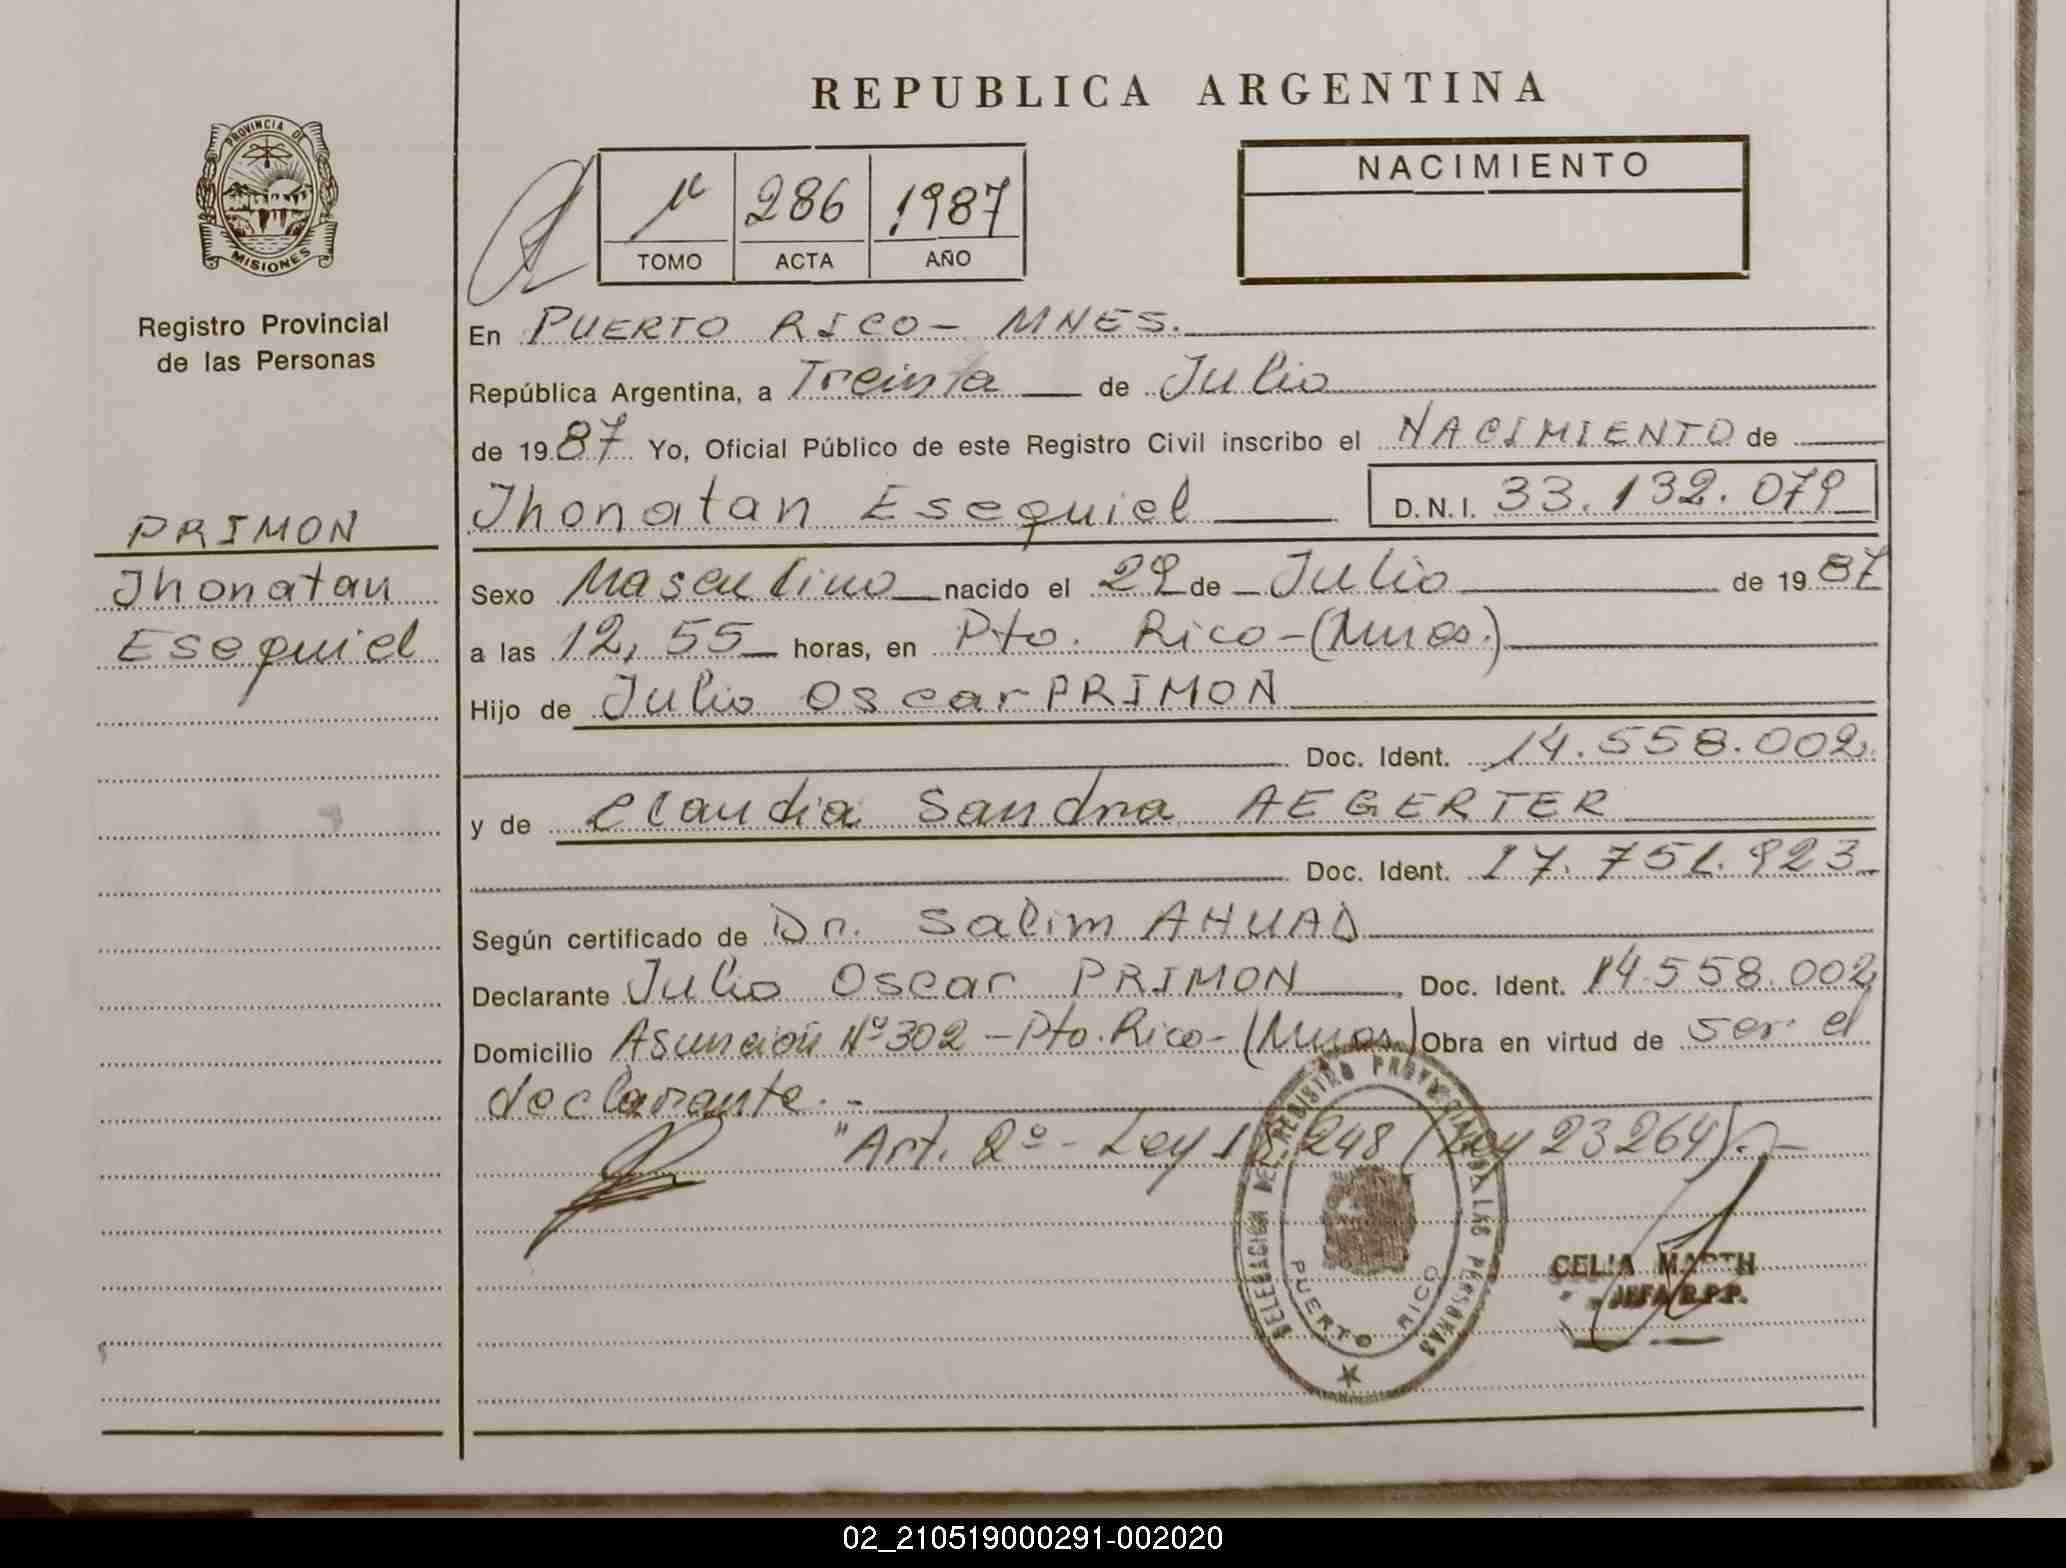 REPUBLICA ARGENTINA
PROVINCIA DE
MISIONES
286 1987
TOMO ACTA AÑO
NACIMIENTO
Registro Provincial
de las Personas
PRIMON
Jhonatan
Esequiel
En PUERTO RICO - MNES.
República Argentina, a Treinta de Julio
de 1987 Yo, Oficial Público de este Registro Civil inscribo el NACIMIENTO de
Jhonatan Esequiel D.N.I. 33.132.079
Sexo Masculino nacido el 29 de Julio de 1987
a las 12,55 horas, en Pto. Rico - (Mnes.)
Hijo de Julio Oscar PRIMON
Doc. Ident. 14.558.002
y de Claudia Sandra AEGERTER
Doc. Ident. 17.751.923
Según certificado de Dr. Salim AHUAD
Declarante Julio Oscar PRIMON Doc. Ident. 14.558.002
Domicilio Asunción Nº 302 - Pto. Rico - (Mnes.) Obra en virtud de ser el
declarante. -
"Art. 2º - Ley 18.248 (Ley 23264).-
DELEGACION DEL REGISTRO PROVINCIAL DE LAS PERSONAS
PUERTO RICO
CELIA MARTH
JEFA R.P.P.
02_210519000291-002020